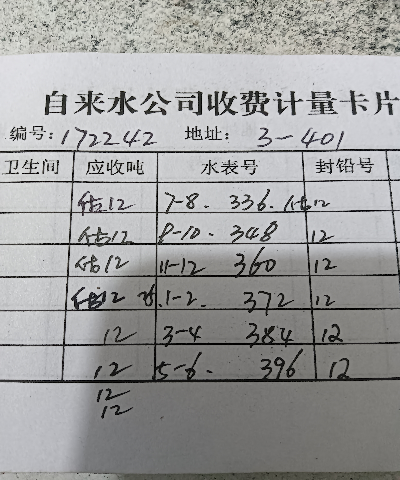 自来水公司收费计量卡片
编号:172242 地址: 3-401
卫生间 应收吨 水表号 封铅号
估12 7-8. 336. 估12
估12 8-10. 348 12
估12 11-12 360 12
估12 1-2. 372 12
12 3-4 384 12
12 5-6. 396 12
12
12